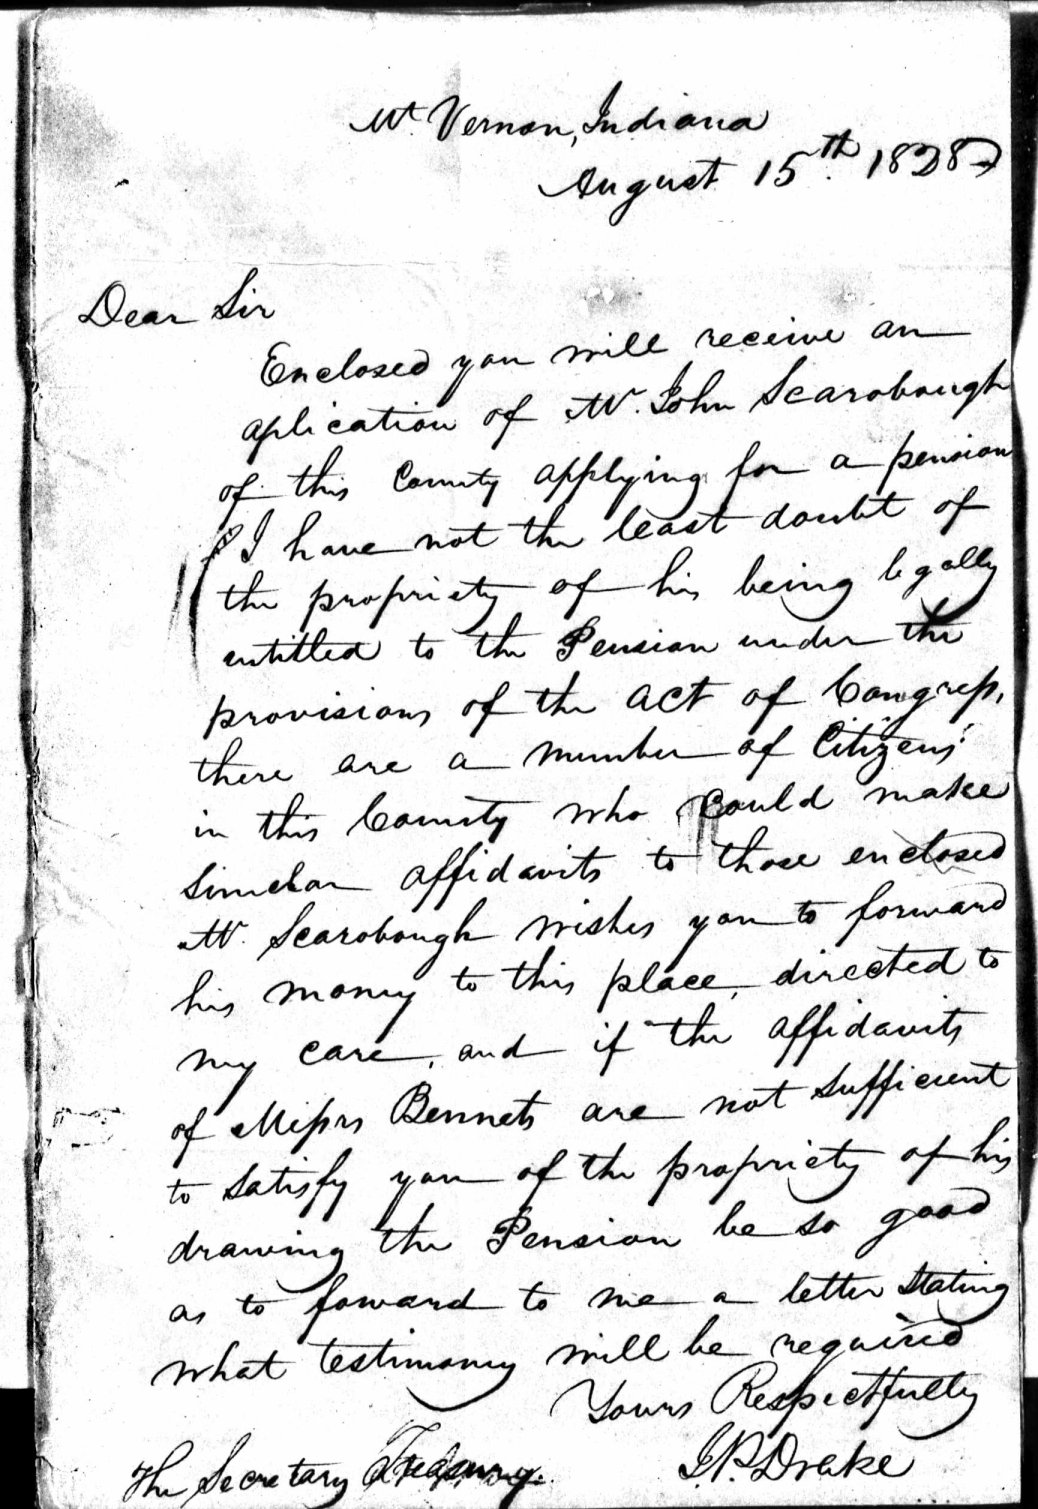 Mt. Vernon, Indiana
August 15th. 1828
Dear Sir
Enclosed you will receive an
aplication of Mr. John Scarobough
of this County applying for a pension
I have not the least doubt of
the propriety of his being legally
entitled to the Pension under the
provisions of the act of Congress,
there are a number of Citizens
in this County who could make
Simelar affidavits to those enclosed
Mr. Scarobough wishes you to forward
his money to this place, directed to
my care, and if the affidavits
of Messrs Bennets are not sufficient
to satisfy you of the propriety of his
drawing the Pension be so good
as to forward to me a letter stating
what testimony will be required
Yours Respectfully
J.P. Drake
The Secretary Treasury.